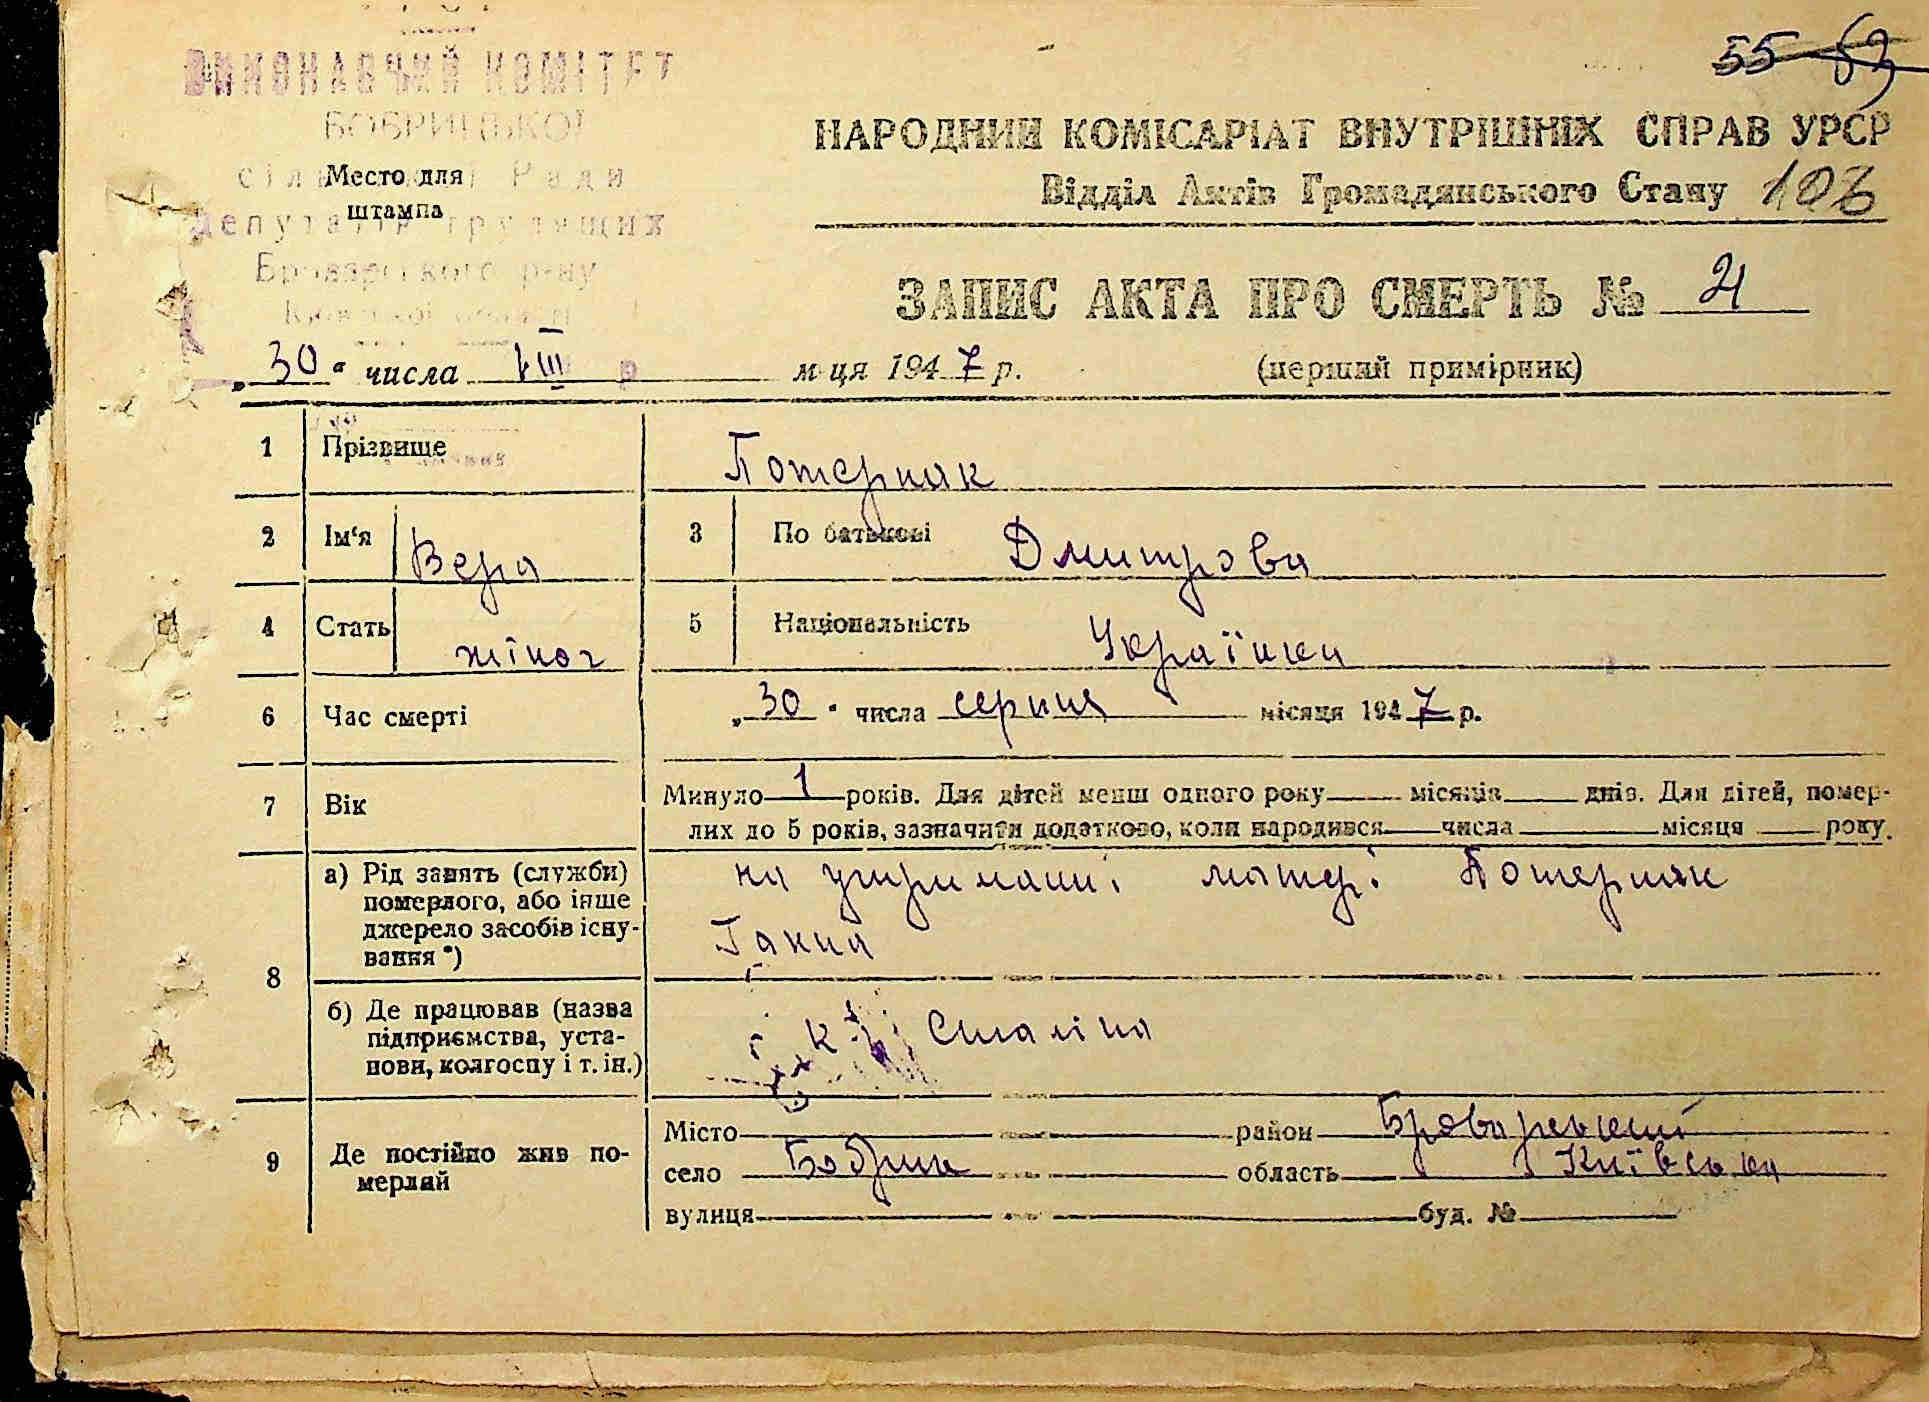 55 63
ВИКОНАВЧИЙ КОМІТЕТ
БОБРИЦЬКОЇ
сільської Ради
депутатів трудящих
Броварського р-ну
Київської області
Место для
штампа
НАРОДНИЙ КОМІСАРІАТ ВНУТРІШНІХ СПРАВ УРСР
Відділ Актів Громадянського Стану 103
ЗАПИС АКТА ПРО СМЕРТЬ № 21
„30“ числа VIII м-ця 1947 р. (перший примірник)
1 Прізвище Потерпяк
2 Ім'я Вера 3 По батькові Дмитрова
4 Стать жіноч 5 Національність Українка
6 Час смерті „30“ числа серпня місяця 1947 р.
7 Вік Минуло 1 років. Для дітей менш одного року місяців днів. Для дітей, помер-
лих до 5 років, зазначити додатково, коли народився числа місяця року.
8 а) Рід занять (служби)
померлого, або інше
джерело засобів існу-
вання*)
на утриманні матері Потерпяк
Ганна
б) Де працював (назва
підприємства, уста-
нови, колгоспу і т. ін.)
к-п Сталіна
9 Де постійно жив по-
мерлий
Місто район Броварський
село Бобрик область Київська
вулиця буд. №